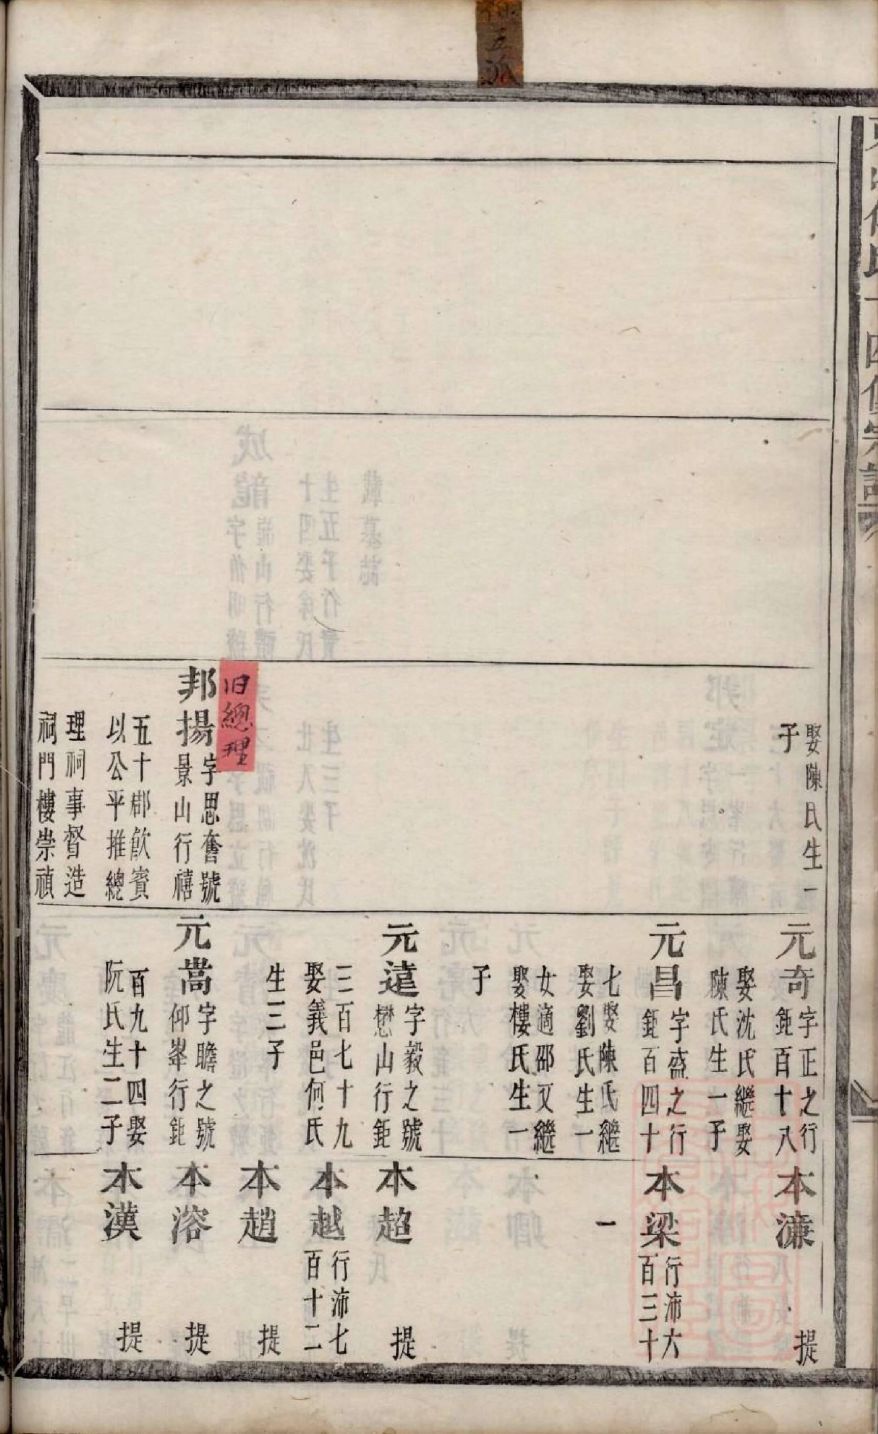 娶陳氏生一
子
旧總理
邦揚
字思奮號
景山行禧
五十郡飲賓
以公平推總
理祠事督造
祠門樓崇禎
元奇
字正之行
鉅百十八
娶沈氏繼娶
陳氏生一子
元昌
字盛之行
鉅百四十
七娶陳氏繼
娶劉氏生一
女適邵又繼
娶樓氏生一
子
元遠
字毅之號
懋山行鉅
三百七十九
娶義邑何氏
生三子
元嵩
字瞻之號
仰峯行鉅
百九十四娶
阮氏生二子
本濂
提
本梁
行沛六
百三十
一
本超
提
本越
行沛七
百十二
本趙
提
本溶
提
本漢
提